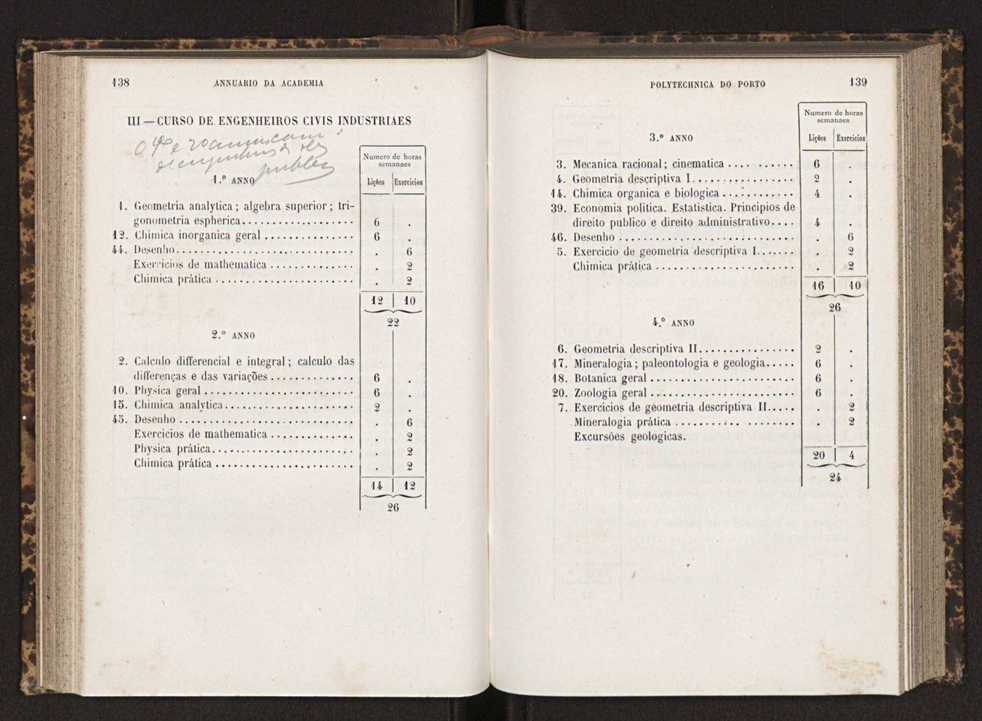 138 ANNUARIO DA ACADEMIA
III — CURSO DE ENGENHEIROS CIVIS INDUSTRIAES
Numero de horas
semanaes
1.º ANNO
Lições Exercicios
1. Geometria analytica; algebra superior; tri-
gonometria espherica................... 6 .
12. Chimica inorganica geral............... 6 .
44. Desenho................................ . 6
Exercicios de mathematica.............. . 2
Chimica prática........................ . 2
12 10
22
2.º ANNO
2. Calculo differencial e integral; calculo das
differenças e das variações............. 6 .
10. Physica geral.......................... 6 .
15. Chimica analytica...................... 2 .
45. Desenho................................ . 6
Exercicios de mathematica.............. . 2
Physica prática........................ . 2
Chimica prática........................ . 2
14 12
26
POLYTECHNICA DO PORTO 139
Numero de horas
semanaes
3.º ANNO
Lições Exercicios
3. Mecanica racional; cinematica........... 6 .
4. Geometria descriptiva I................. 2 .
14. Chimica organica e biologica........... 4 .
39. Economia politica. Estatistica. Principios de
direito publico e direito administrativo.... 4 .
46. Desenho................................ . 6
5. Exercicio de geometria descriptiva I...... . 2
Chimica prática........................ . 2
16 10
26
4.º ANNO
6. Geometria descriptiva II................ 2 .
17. Mineralogia; paleontologia e geologia..... 6 .
18. Botanica geral......................... 6 .
20. Zoologia geral......................... 6 .
7. Exercicios de geometria descriptiva II..... . 2
Mineralogia prática.................... . 2
Excursões geologicas.
20 4
24